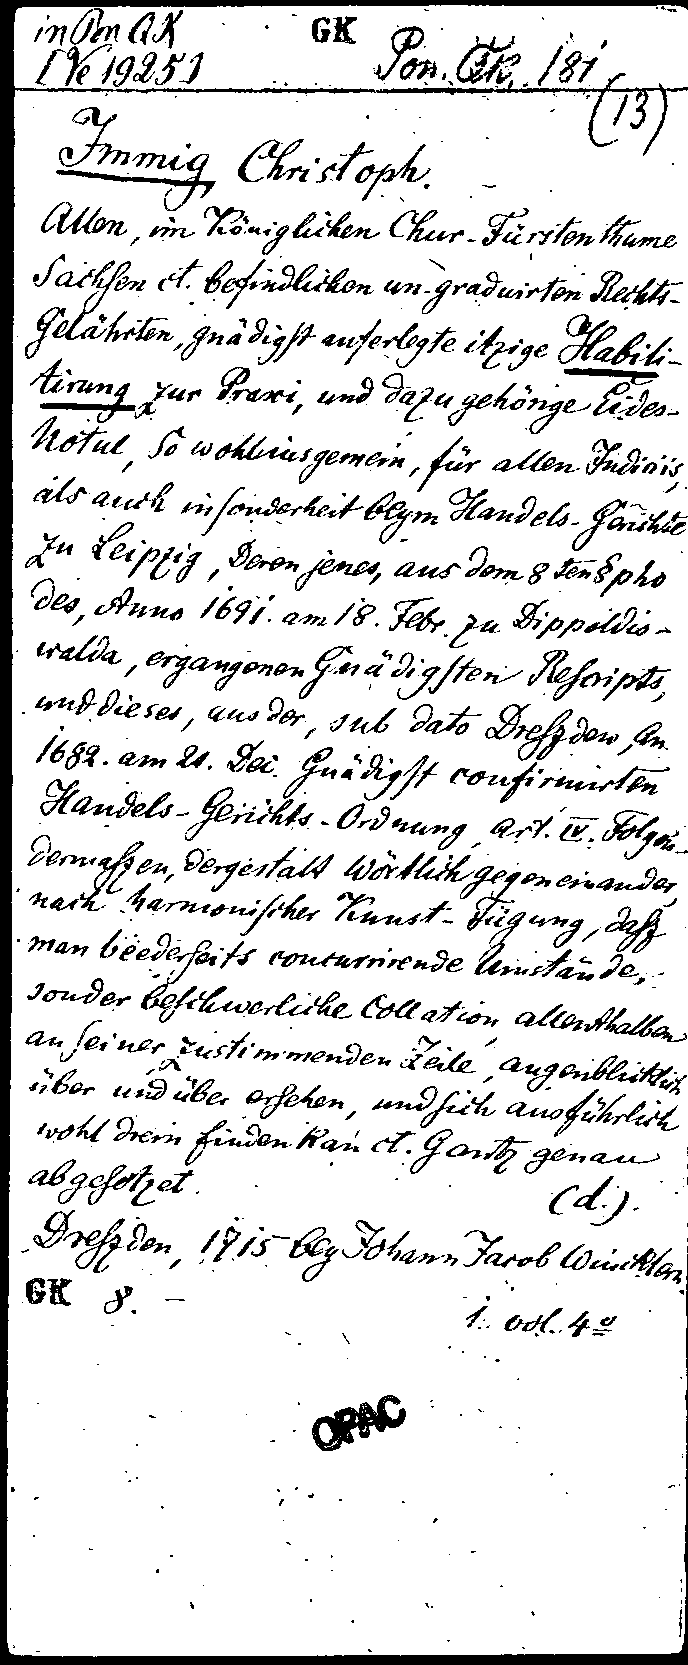 in Pon QK
[Ve 1925]
GK
Pon. QK. 181
(13)
Immig Christoph.
Allen, im Königlichen Chur-Fürstenthume
Sachsen ct. befindlichen un-graduirten Rechts-
Gelährten, gnädigst auferlegte itzige Habili-
tirung zur Praxi, und dazu gehörige Eides-
Notul, So wohl insgemein, für allen Indiciis,
als auch insonderheit beym Handels-Gerichte
zu Leipzig, Deren jenes, aus dem 8ten §pho
des, Anno 1691. am 18. Febr. zu Dippoldis-
walda, ergangenen Gnädigsten Rescripts,
und dieses, aus der, sub dato Dreszden, An.
1682. am 21. Dec. Gnädigst confirmirten
Handels-Gerichts-Ordnung art. IV. Folgen-
dermaszen, dergestalt Wörtlich gegen einander,
nach harmonischer Kunst-Fügung, dasz
man beederseits concurrirende Umstände,
sonder beschwerliche Collation allenthalben
an seiner zustimmenden Zeile, augenblicklich
über und über ersehen, und sich ausführlich
wohl drein finden kan ct. Gantz genau
abgesetzet. (d.).
Dreszden, 1715 bey Johann Jacob Wincklern.
GK 8. –
1. vol. 4º
OPAC